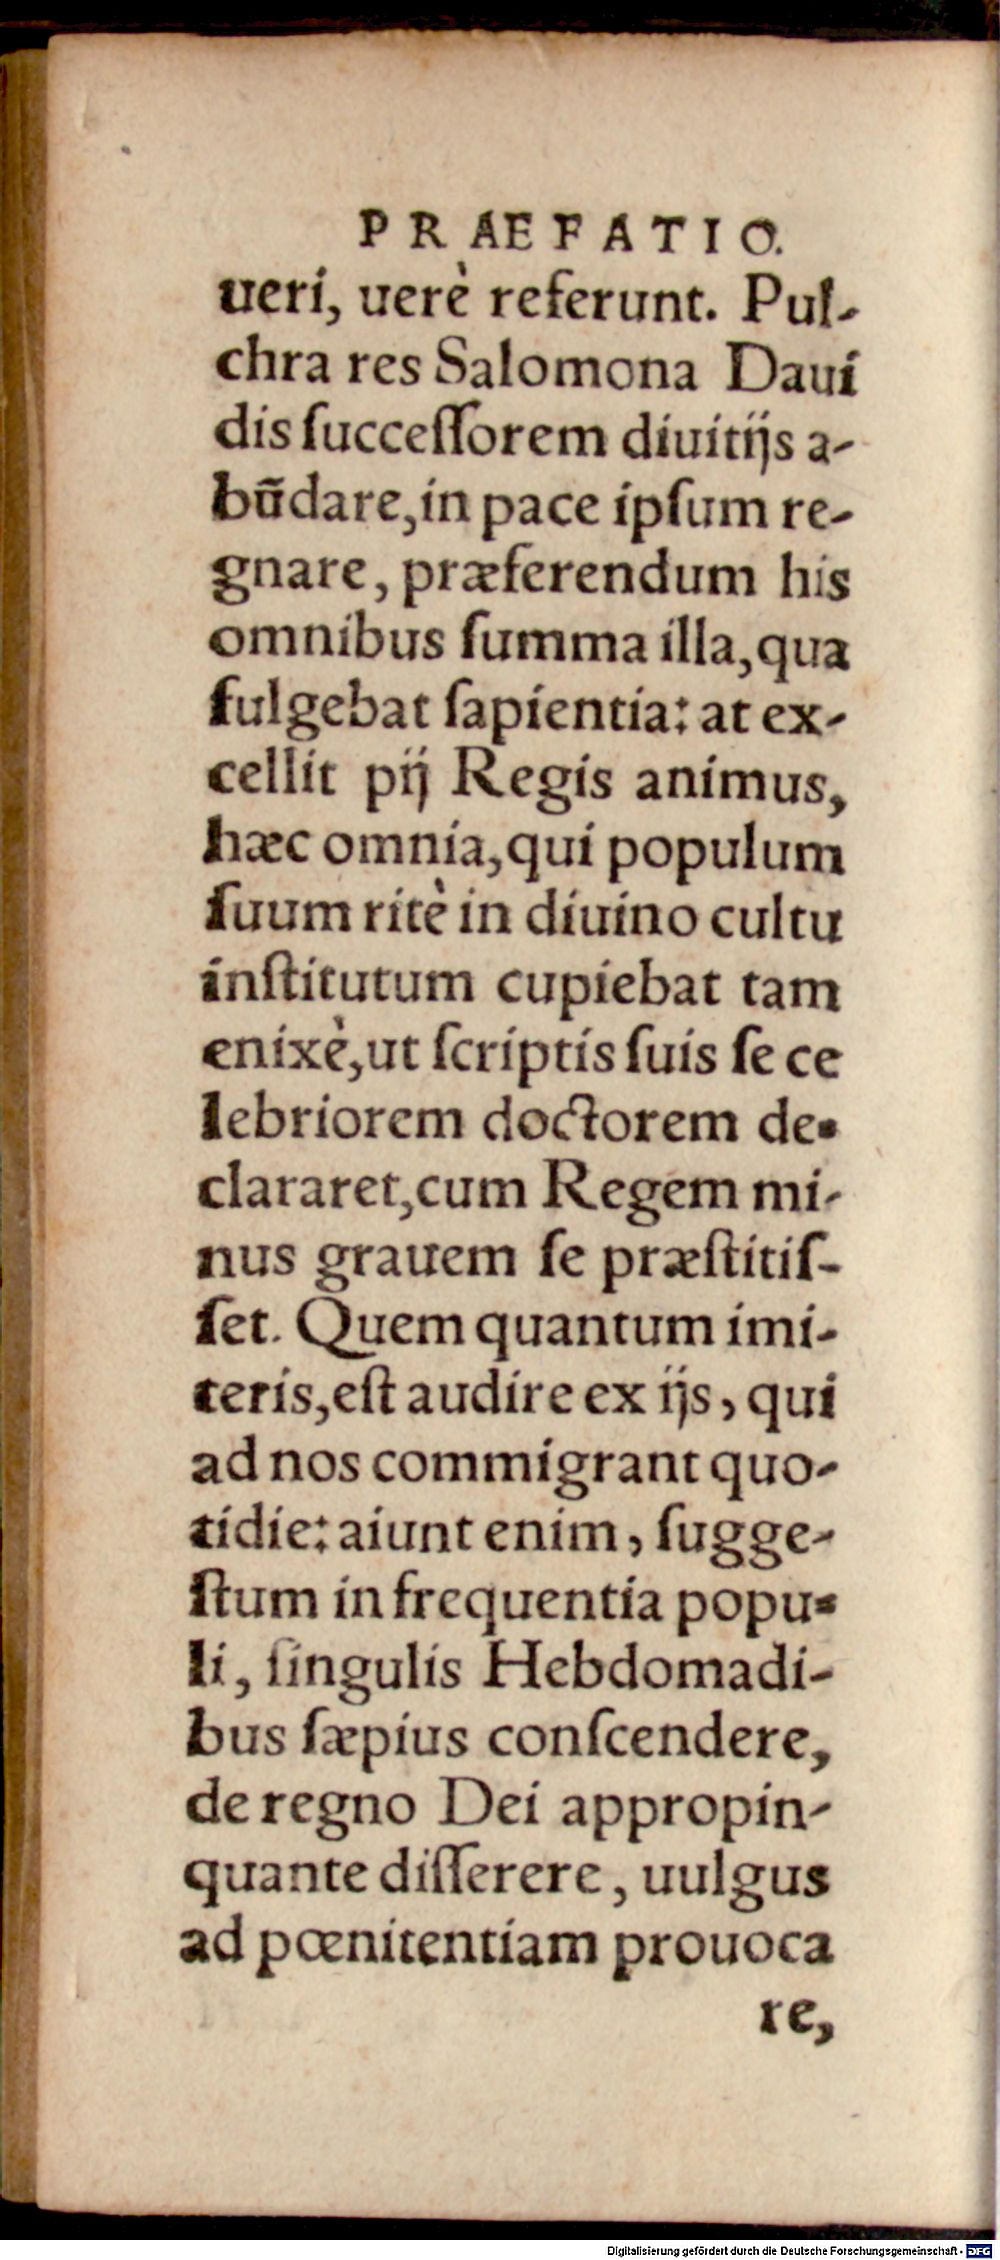 PRAEFATIO.
ueri, uerè referunt. Pul-
chra res Salomona Daui
dis ſucceſſorem diuitijs a-
bũdare, in pace ipſum re-
gnare, præferendum his
omnibus ſumma illa, qua
fulgebat ſapientia: at ex-
cellit pij Regis animus,
hæc omnia, qui populum
ſuum ritè in diuino cultu
inſtitutum cupiebat tam
enixè, ut ſcriptis ſuis ſe ce
lebriorem doctorem de-
clararet, cum Regem mi-
nus grauem ſe præſtitiſ-
ſet. Quem quantum imi-
teris, eſt audire ex ijs, qui
ad nos commigrant quo-
tidie: aiunt enim, ſugge-
ſtum in frequentia popu-
li, ſingulis Hebdomadi-
bus ſæpius conſcendere,
de regno Dei appropin-
quante diſſerere, uulgus
ad pœnitentiam prouoca
re,
Digitalisierung gefördert durch die Deutsche Forschungsgemeinschaft - DFG